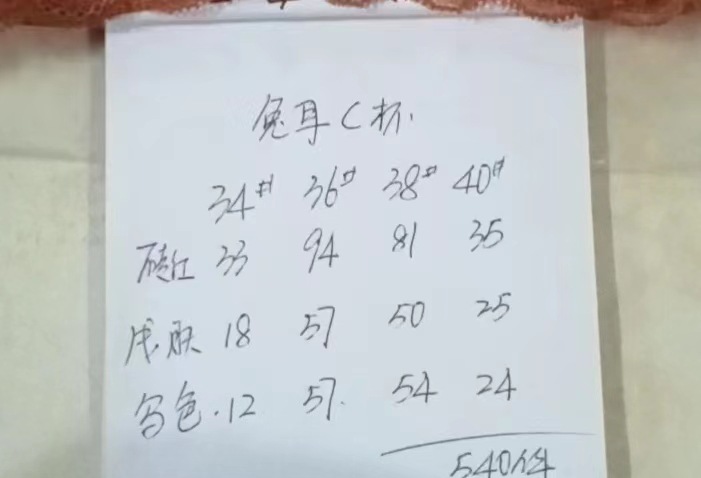 兔耳C杯.
34# 36# 38# 40#
砖红 33 94 81 35
浅肤 18 57 50 25
乌色.12 57. 54 24
540件